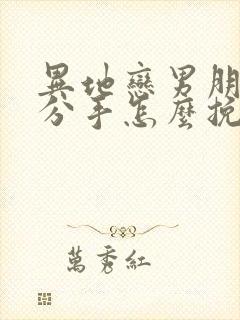 異地戀男朋
分手怎麼挽
萬秀紅